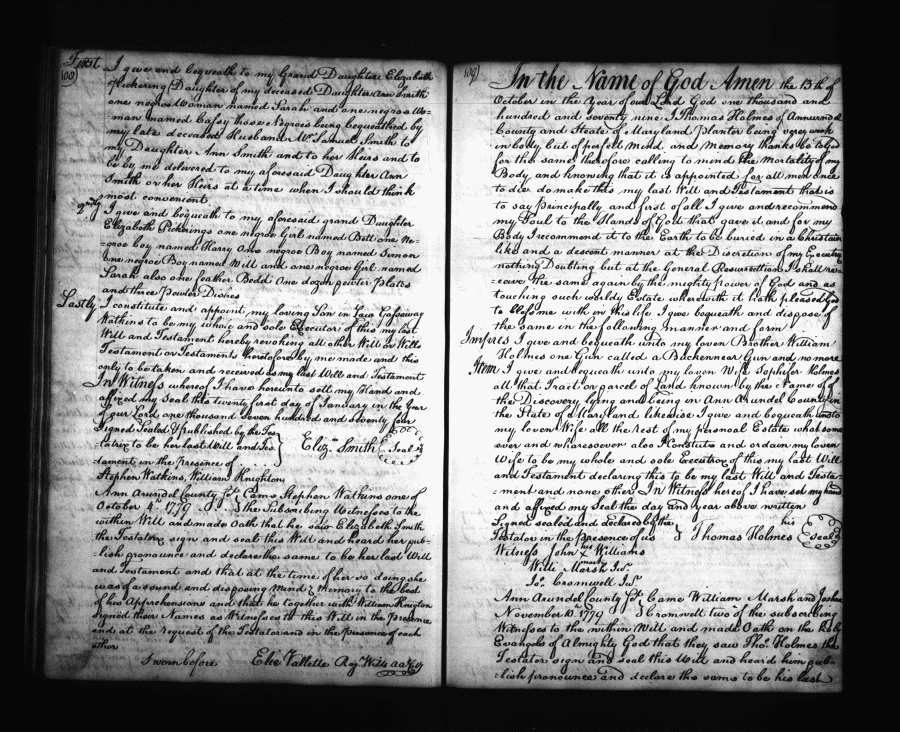 First I give and bequeath to my Grand Daughter Elizabeth
Pickering Daughter of my deceased Daughter Ann Smith
one negroe Woman named Sarah and one negroe Wo-
man named Cafey those Negroes being bequeathed by
my late deceased Husband Mr Samuel Smith to
my Daughter Ann Smith and to her Heirs and to
be by me delivered to my aforesaid Daughter Ann
Smith or her Heirs at a time when I should think
most convenient
2ndly I give and bequeath to my aforesaid grand Daughter
Elizabeth Pickerings one negroe Girl named Bett one Ne-
-groe boy named Harry One negroe Boy named Vernon
One negroe Boy named Will and one negroe Girl named
Sarah also one feather Bedd One dozen pewter Plates
and three Powder Dishes
Lastly I constitute and appoint my loving Son in Law Gassaway
Watkins to be my whole and sole Executor of this my last
Will and Testament hereby revoking all other Will or Wills
Testament or Testaments heretofore by me made and this
only to be taken and received as my last Will and Testament
In Witness whereof I have hereunto sett my Hand and
affixed my Seal this twenty first day of January in the Year
of our Lord one thousand seven hundred and seventy four
Signed Sealed & published by the Tes-
tatrix to be her last Will and Tes- } Elizth Smith Seal
tament in the presence of
Stephen Watkins, William Knighton
Ann Arundel County Sct. Came Stephen Watkins one of
October 4th 1779 } the Subscribing Witnesses to the
within Will and made Oath that he saw Elizabeth Smith
the Testatrix sign and seal this Will and heard her pub-
-lish pronounce and declare the same to be her last Will
and Testament and that at the time of her so doing she
was of a sound and disposing Mind & Memory to the best
of his Apprehension and that he together with William Knigton
signed their Names as Witnesses to this Will in the Presence
and at the request of the Testator and in the presence of each
other
Sworn before Elie Vallette Regr Wills
109) In the Name of God Amen the 13th of
October in the Year of our Lord God one thousand and
hundred and seventy nine I Thomas Holmes of Annarundel
County and State of Maryland Planter being very weak
in body but of perfeld Mind and Memory thanks be to God
for the same therefore calling to mind the Mortality of my
Body and knowing that it is appointed for all men once
to die do make this my last Will and Testament that is
to say Principally and first of all I give and recommend
my Soul to the Hands of God that gave it and for my
Body I recommend it to the Earth to be buried in a Christain
like and a descent manner at the Discretion of my Executrix
nothing Doubling but at the General Resurrection I shall re-
-ceive the same again by the mighty power of God and as
touching such worldy Estate wherewith it hath pleased God
to bless me with in this life I give bequeath and dispose of
the same in the following manner and form
Imfires I give and bequeath unto my loven Brother William
Holmes one Gun called a Buckennear Gun and no more
Atem I give and bequeath unto my loven Wife Sophifer Holmes
all that Tract or parcel of Land known by the Name of
the Discovery lying and being in Ann Arundel County in
the State of Maryland likewise I give and bequeath unto
my loven Wife all the rest of my personal Estate what some
ever and wheresoever also I Constitute and ordain my loven
Wife to be my whole and sole Executrix of this my last Will
and Testament declaring this to be my last Will and Testa-
-ment and none other In Witness hereof I have set my hand
and affixed my Seal the day and year above written
Signed sealed and declared by the his
Testator in the presence of us } Thomas Holmes seal
Witness John his x Williams
mark
Will Marsh Jur
Jos. Cromwell Jur
Ann Arundel County Sct. Came William Marsh and Joshua
November 10th 1779 } Cromwell two of the subscribing
Witnesses to the within Will and made Oath on the Holy
Evangels of Almighty God that they saw Thos. Holmes the
Testator sign and seal this Will and heard him pub-
-lish pronounce and declare the same to be his last